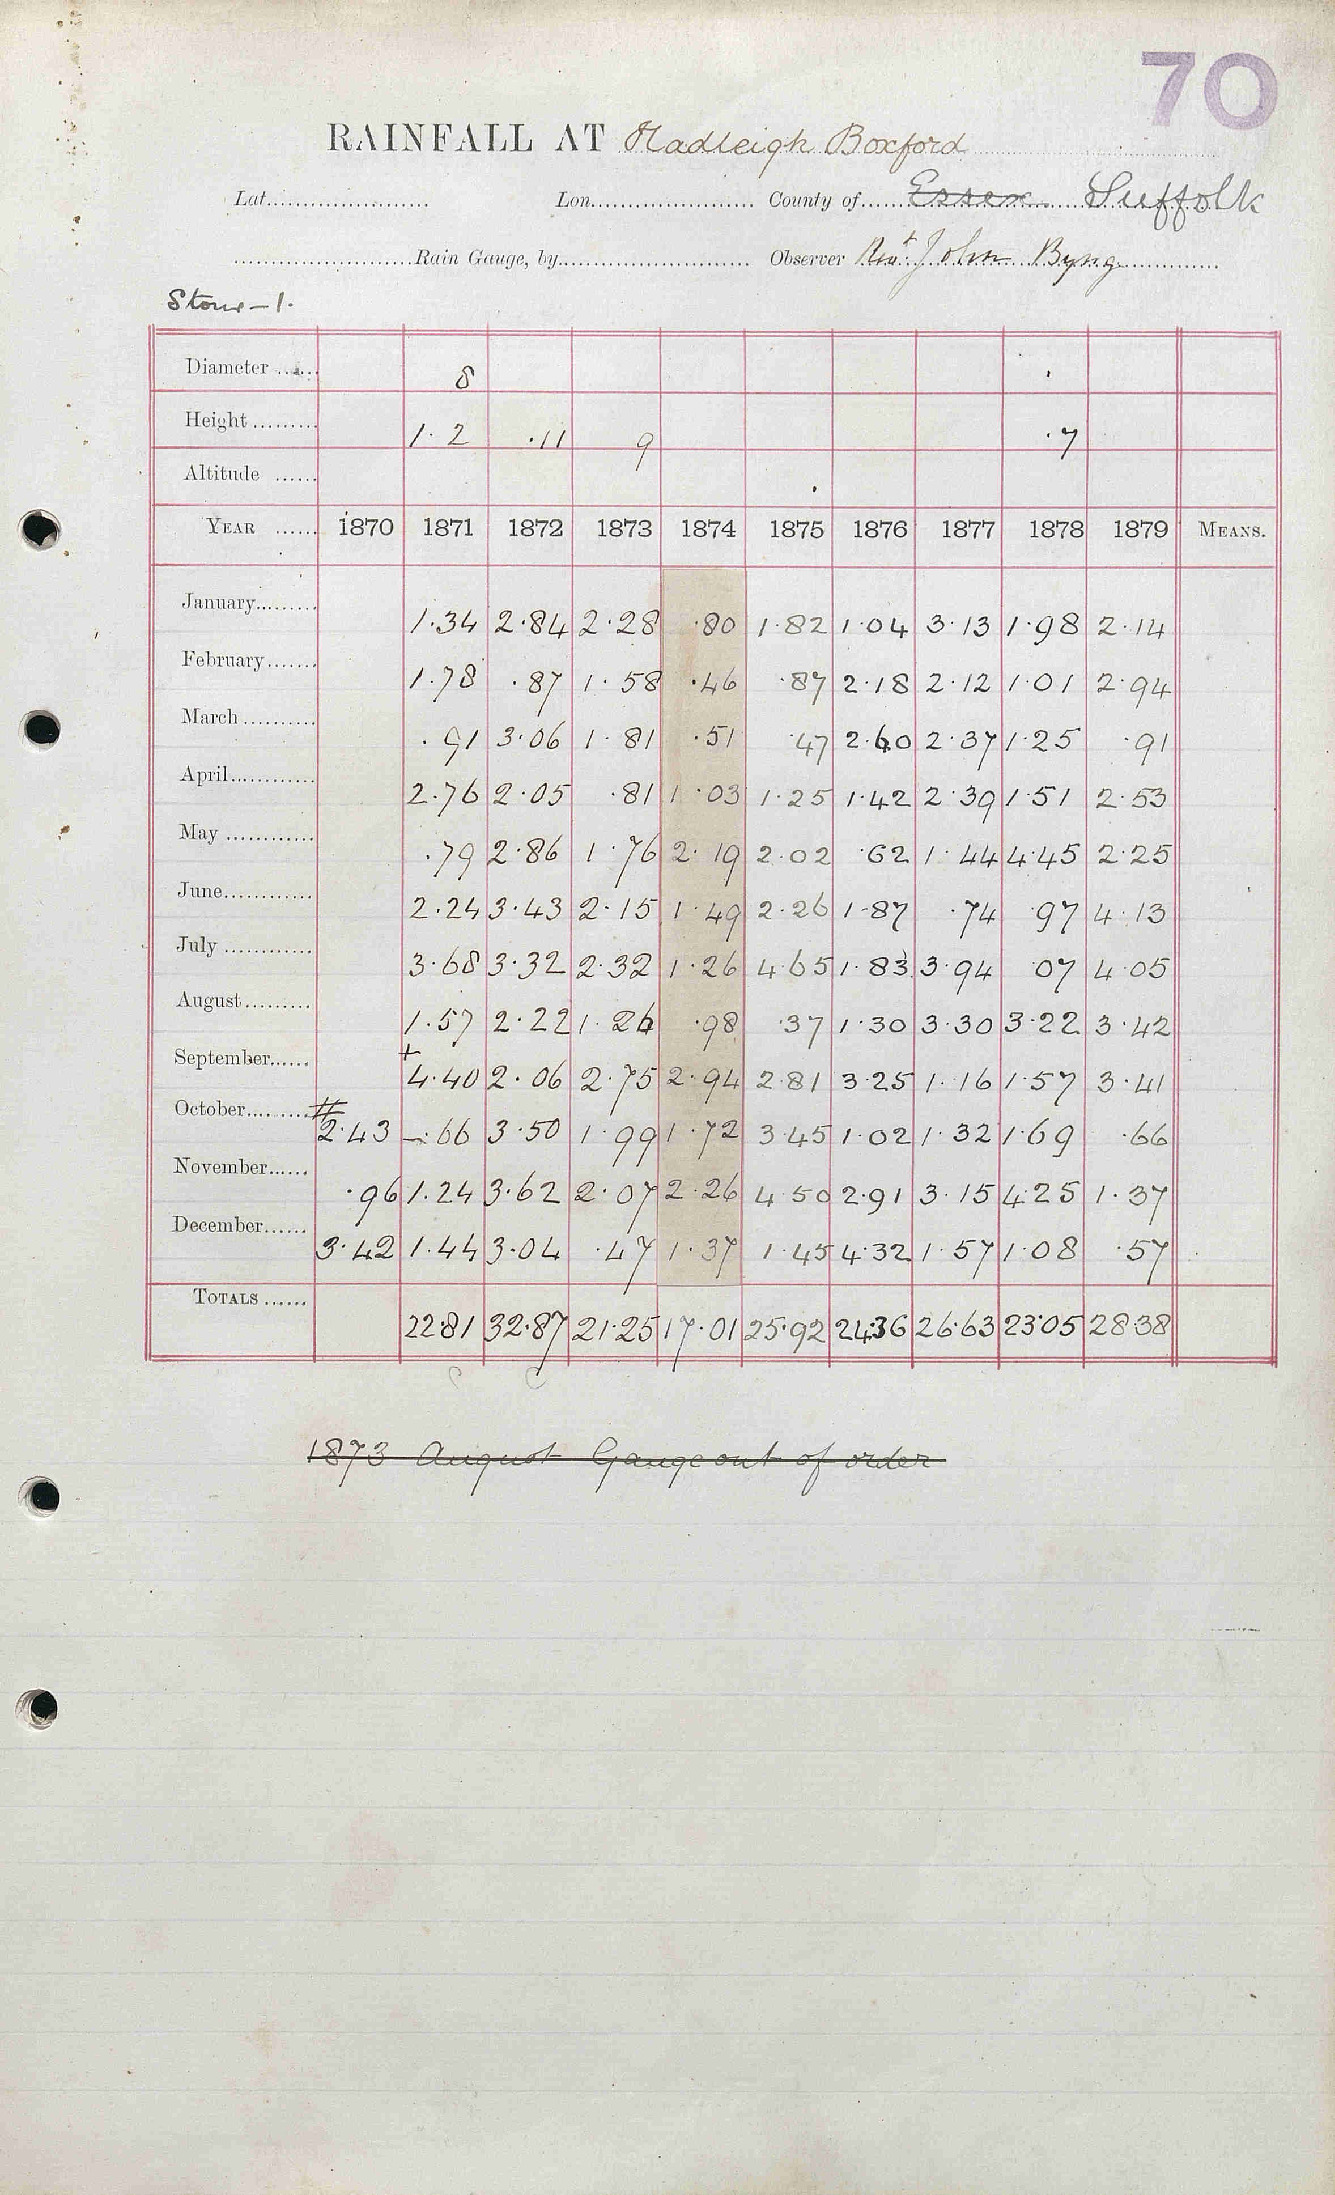 70
RAINFALL AT Hadleigh Boxford
Lat. Lon. County of Essex Suffolk
Rain Gauge, by Observer Revd John Byng
Stour-1.
Diameter 8
Height 1.2 .11 9 .7
Altitude
YEAR 1870 1871 1872 1873 1874 1875 1876 1877 1878 1879 MEANS.
January 1.34 2.84 2.28 .80 1.82 1.04 3.13 1.98 2.14
February 1.78 .87 1.58 .46 .87 2.18 2.12 1.01 2.94
March .91 3.06 1.81 .51 .47 2.60 2.37 1.25 .91
April 2.76 2.05 .81 1.03 1.25 1.42 2.39 1.51 2.53
May .79 2.86 1.76 2.19 2.02 .62 1.44 4.45 2.25
June 2.24 3.43 2.15 1.49 2.26 1.87 .74 .97 4.13
July 3.68 3.32 2.32 1.26 4.65 1.83 3.94 07 4.05
August 1.57 2.22 1.26 .98 .37 1.30 3.30 3.22 3.42
September + 4.40 2.06 2.75 2.94 2.81 3.25 1.16 1.57 3.41
October # 2.43 .66 3.50 1.99 1.72 3.45 1.02 1.32 1.69 .66
November .96 1.24 3.62 2.07 2.26 4.50 2.91 3.15 4.25 1.37
December 3.42 1.44 3.04 .47 1.37 1.45 4.32 1.57 1.08 .57
TOTALS 22.81 32.87 21.25 17.01 25.92 24.36 26.63 23.05 28.38
1873 August Gauge out of order